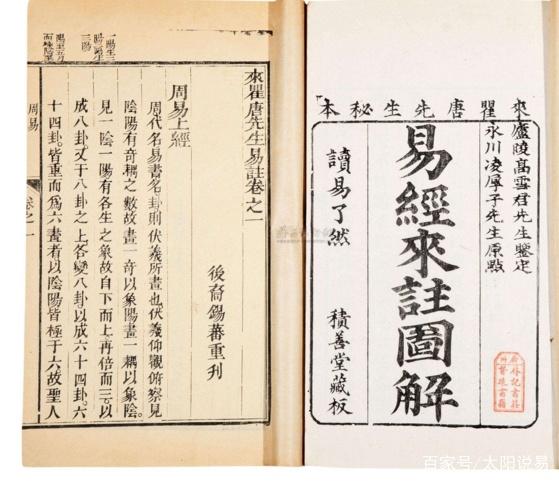 來瞿唐先生秘本
高雪君先生鑒定
永川凌厚子先生原點
易經來註圖解
讀易了然
積善堂藏板
來瞿唐先生易註卷之一
後裔錫蕃重刊
周易上經
周代名易書名卦則伏羲所畫也伏羲仰觀俯察見
陰陽有奇耦之數故畫一奇以象陽畫一耦以象陰
見一陰一陽有各生之象故自下而上再倍而三以
成八卦又于八卦之上各變八卦以成六十四卦六
十四卦皆重而爲六畫者以陰陽皆極于六故聖人
周易
卷之一
百家号/太阳说易